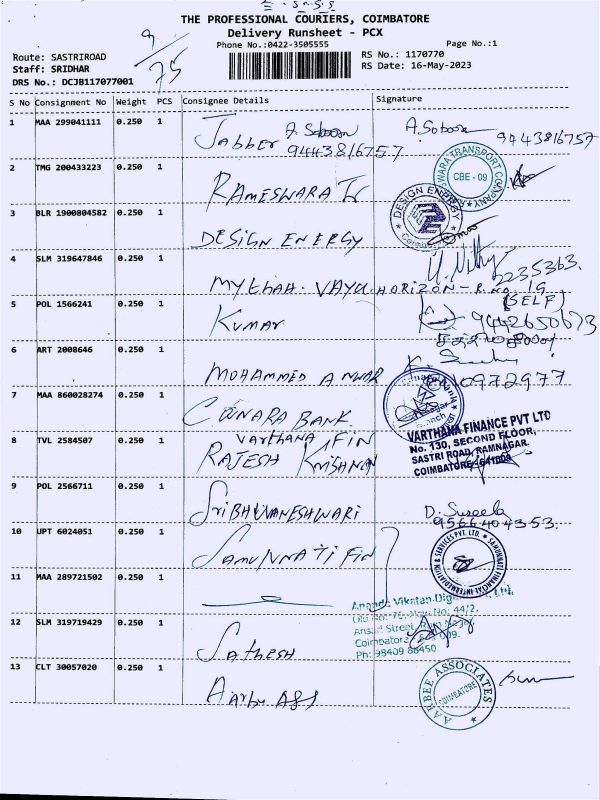 THE PROFESSIONAL COURIERS, COIMBATORE
Delivery Runsheet - PCX
Phone No.:0422-3505555
Page No.:1
9/75
Route: SASTRIROAD
Staff: SRIDHAR
DRS No.: DCJB117077001
RS No.: 1170770
RS Date: 16-May-2023
S No Consignment No Weight PCS Consignee Details Signature
1 MAA 299041111 0.250 1 Jabber A. Saboora A. Saboora
9443816757 9443816757
2 TMG 200433223 0.250 1 RAMESWARA Tr TRANSPORT COMPANY CBE - 09
3 BLR 1900804582 0.250 1 DESIGN ENERGY DESIGN ENERGY
4 SLM 319647846 0.250 1 Mythaa. VAYU HORIZON - R.no. 19 2235363.
5 POL 1566241 0.250 1 KUMAR (SELF) 9442650673
6 ART 2008646 0.250 1 MOHAMMED ANWAR 10972977
7 MAA 860028274 0.250 1 CANARA BANK
8 TVL 2584507 0.250 1 VARTHANA FIN
RAJESH KRISHNAN
VARTHANA FINANCE PVT LTD
No. 130, SECOND FLOOR,
SASTRI ROAD, RAMNAGAR.
COIMBATORE - 641009
9 POL 2566711 0.250 1 SRIBHUVANESHWARI D. Suseela
9566404353.
10 UPT 6024051 0.250 1 SAMUNNATI FIN SAMUNNATI FINANCIAL INTERMEDIATION & SERVICES PVT. LTD.
11 MAA 289721502 0.250 1
Ananda Vikatan Ltd,
New No: 44/2.
Street, Ram Nagar
Coimbatore 009.
Ph: 98409 86450
12 SLM 319719429 0.250 1 SATHESH
13 CLT 30057020 0.250 1 Aarbee Ass AARBEE ASSOCIATES COIMBATORE